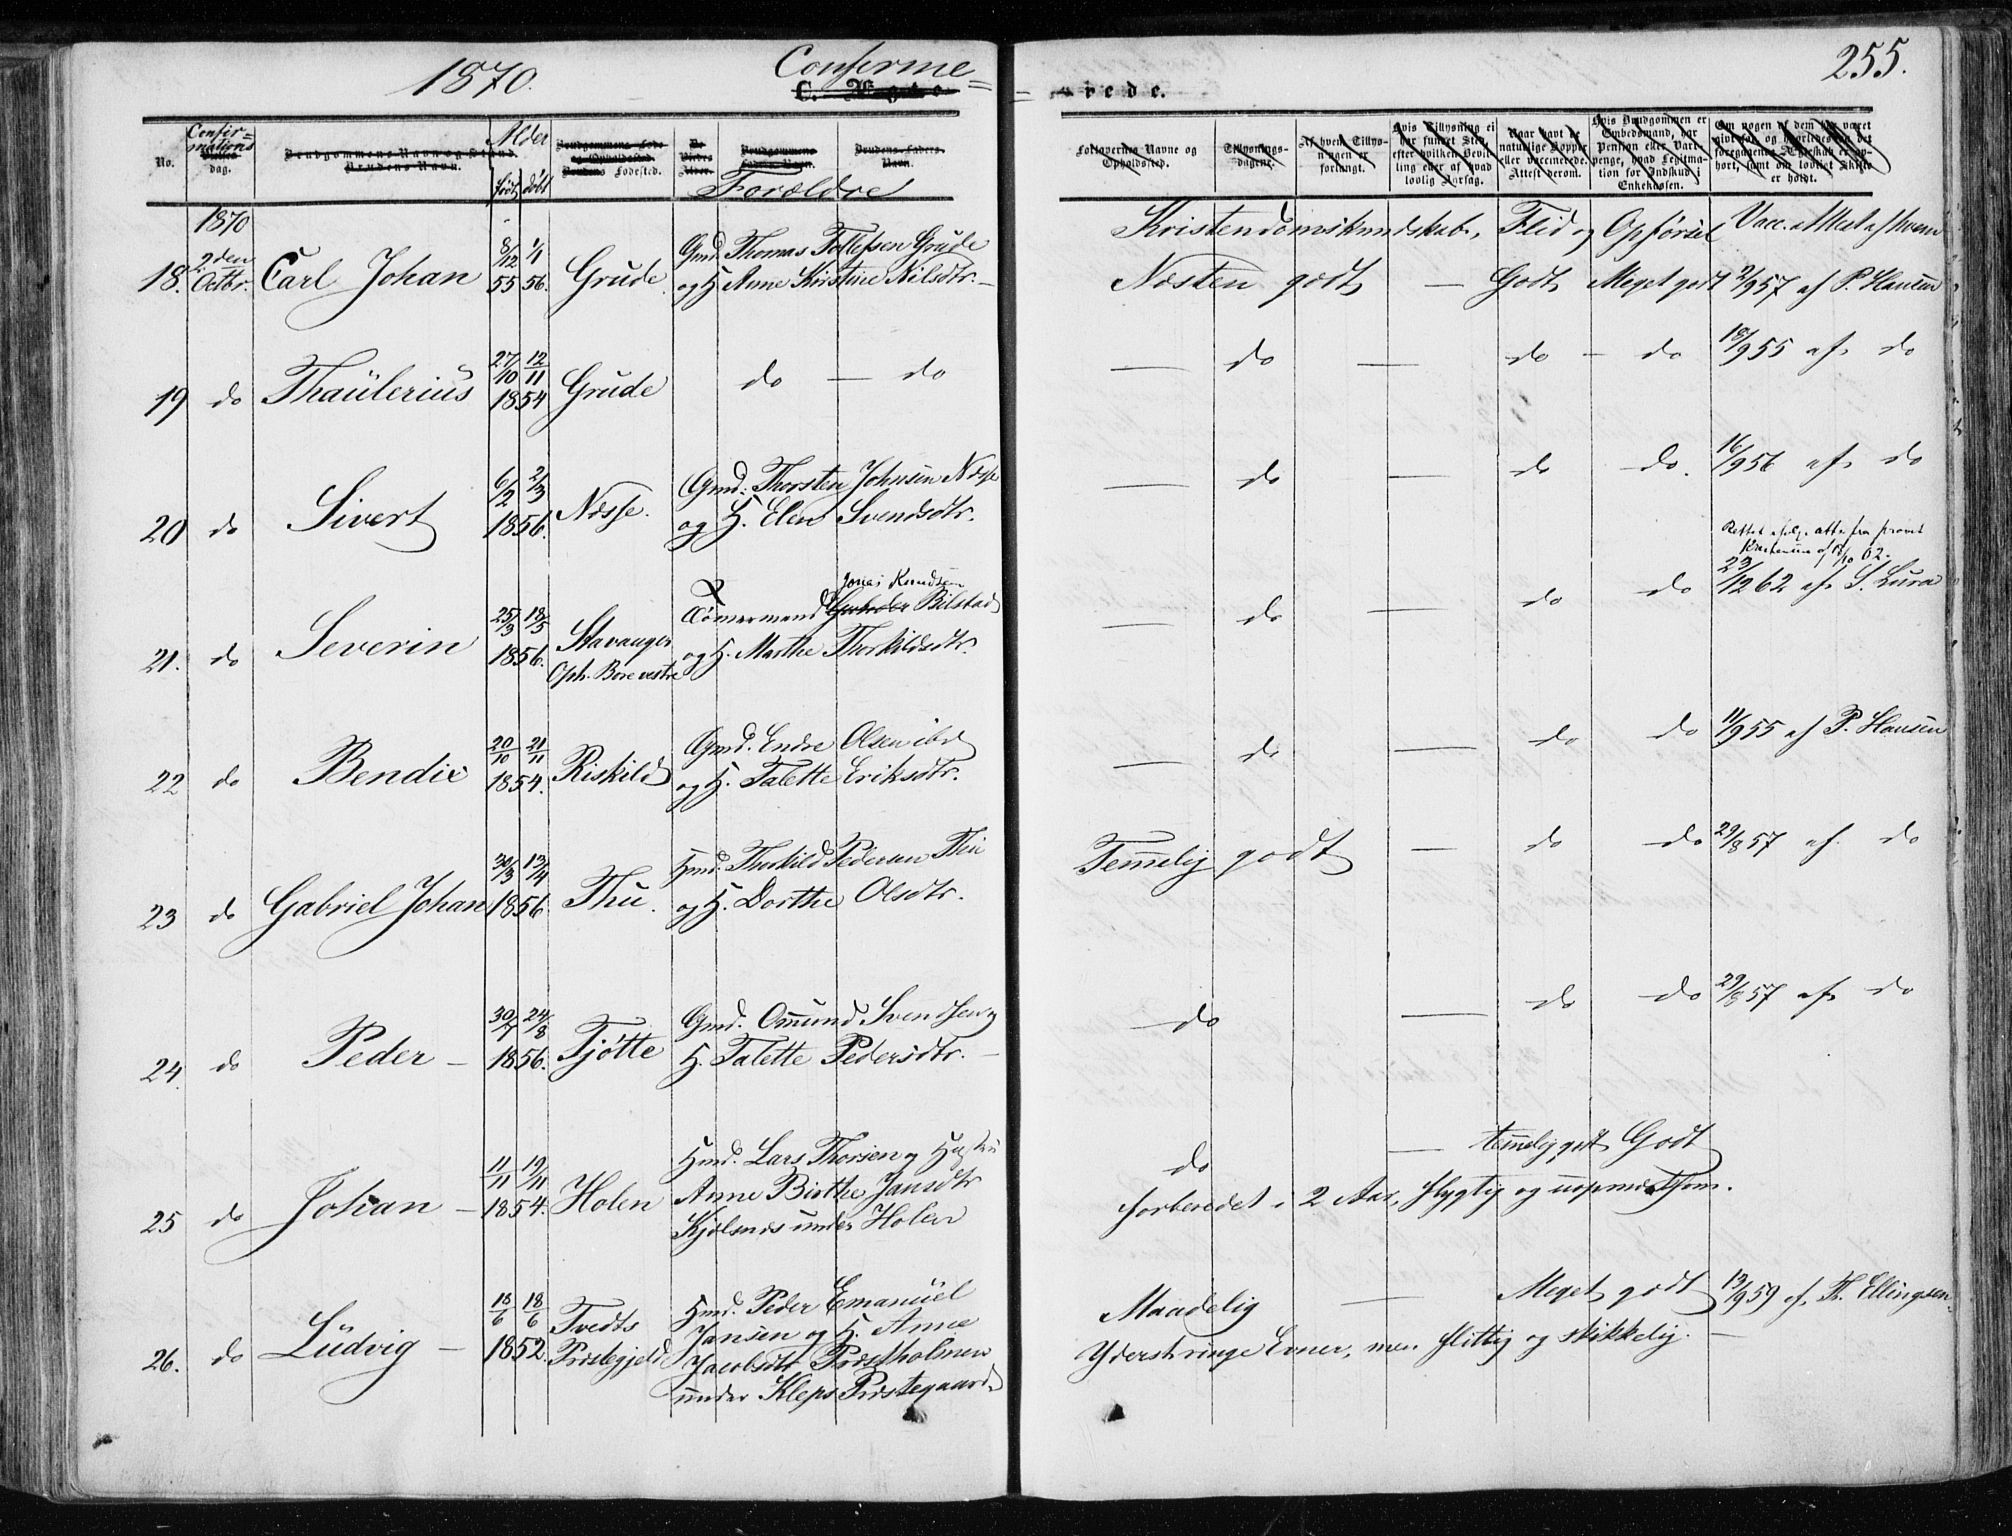 1870. Confirme=
C. Vigte =rede. 255.
No. Confir=mations dag. Brudgommens Navn og Stand. Brudens Navn. Alder født døbt Fødested. Forældre
Forlovernes Navne og Opholdssted. Tillysnings-dagene. Af hvem Tillysningen er forlangt. Hvis Tillysning ei har funket Sted, efter hvilken Bevilling eller af hvad lovlig Aarsag. Naar havt de naturlige Kopper eller vaccinerede. Attest derom. Hvis Brudgommen er Embedsmand, har Pension eller Vartpenge, hvad Legitimation for Indskud i Enkekassen.
Kristendomskundskab, Flid og Opførsel Vacc. Attest af hvem
1870
18. 2den Octbr. Carl Johan 8/12 55 1/1 56. Grude Gmd. Thomas Tollefsen Grude
og H. Anne Kirstine Nilsdtr. –
Næsten godt — Godt Meget godt 2/9 57 af P. Hansen
19 do Thaulerius 27/10 12/11 1854 Grude do — do
— do — do – do 18/9 55 af do
20 do Sivert 6/2 2/3 1856. Næsse. Gmd. Thorsten Johnsen Næsse
og H. Elen Svendsdtr.
— do — do do. 16/9 56 af do
21. do Severin 25/3 18/5 1856. Stavanger
Oph. Bore vestre
Jonas Knudsen
Tømermand Bilstad
og H. Marthe Thorkildsdtr.
— do — do do 23/12 62 af S. Lura
22 do Bendix 20/10 21/11 1854. Riskild Gmd. Endre Olsen ibd
og H. Talette Eriksdtr.
— do — do do 11/9 55 af P. Hansen
23 do Gabriel Johan 30/3 13/4 1856. Thu. Hmd. Thorkild Pedersen Thu
og H. Dorthe Olsdtr.
Temmelig godt — do do 29/8 57 af do
24. do Peder – 30/7 24/8 1856. Tjøtte Gmd. Omund Svendsen og
H. Talette Pedersdtr. –
do — do do 29/8 57 af do
25 do Johan – 11/11 19/11 1854. Holen Hmd. Lars Thorsen og Hustru
Anne Birthe Jansdtr
Kjølsnæs under Holen
do — temmelig godt Godt
forberedet i 2 Aar, flygtig og uopmærksom.
26. do Ludvig – 18/6 18/6 1852. Tvedts
Præstegjeld
Hmd. Peder Emanuel
Jansen og H. Anne
Jacobsdtr Præstholmen
under Kleps Præstegaard
Maadelig — Meget godt 13/9 59 af Th. Ellingsen.
Yderst ringe Evner, men flittig og skikkelig. –